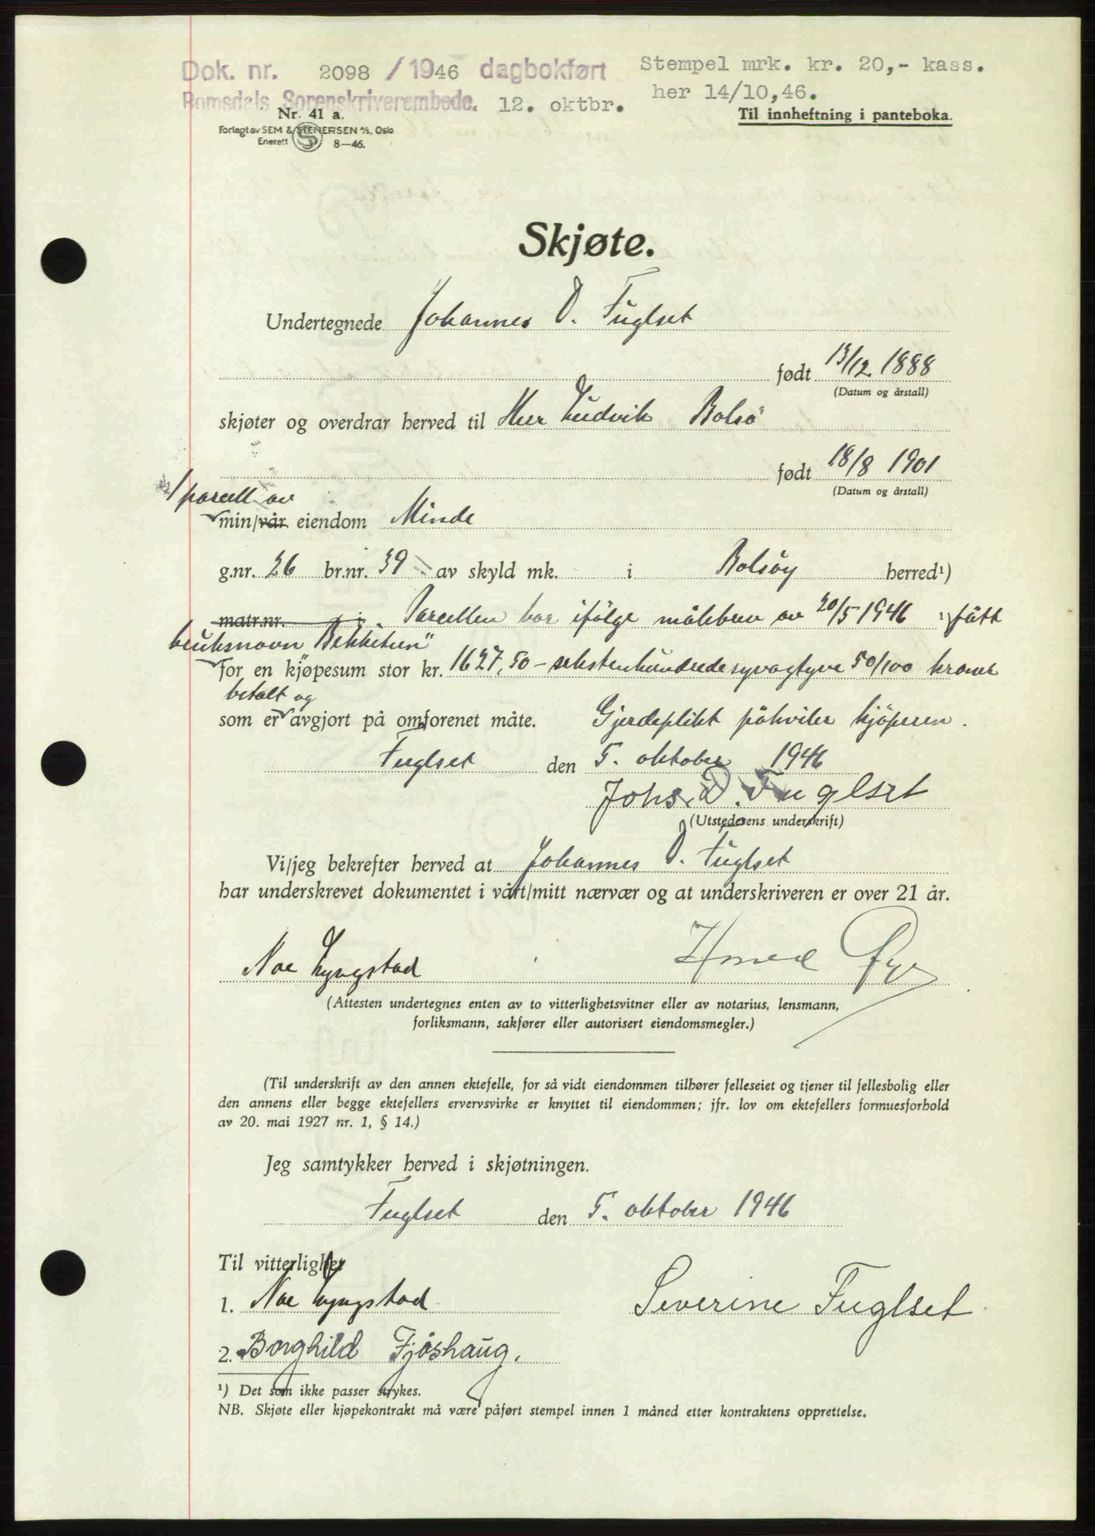 Dok. nr. 2098 / 1946 dagbokført Stempel mrk. kr. 20,- kass.
Romsdals Sorenskriverembede. 12. oktbr. her 14/10,46.
Nr. 41 a. Til innheftning i panteboka.
Forlagt av SEM & STENERSEN A/S, Oslo
Enerett 8—46.
Skjøte.
Undertegnede Johannes D. Fuglset
født 13/12 1888
(Datum og årstall)
skjøter og overdrar herved til Herr Ludvik Bolsö
født 18/8 1901
(Datum og årstall)
1 parcell av
min/vår eiendom Minde
g.nr. 26 br.nr. 39 av skyld mk. i Bolsöy herred¹)
matr.nr. i Parcellen har ifölge målebrev av 20/5 1946 ¹) fått
bruksnavn
for en kjøpesum stor kr. 1627,50 – sekstenhundredesyvogtyve 50/100 kroner
betalt og
som er avgjort på omforenet måte. Gjerdeplikt påhviler kjöperen.
Fuglset den 5. oktober 1946
Johs. D. Fuglset
(Utstederens underskrift)
Vi/jeg bekrefter herved at Johannes D. Fuglset
har underskrevet dokumentet i vårt/mitt nærvær og at underskriveren er over 21 år.
Noe Lyngstad Øye
(Attesten undertegnes enten av to vitterlighetsvitner eller av notarius, lensmann,
forliksmann, sakfører eller autorisert eiendomsmegler.)
(Til underskrift av den annen ektefelle, for så vidt eiendommen tilhører felleseiet og tjener til fellesbolig eller
den annens eller begge ektefellers ervervsvirke er knyttet til eiendommen; jfr. lov om ektefellers formuesforhold
av 20. mai 1927 nr. 1, § 14.)
Jeg samtykker herved i skjøtningen.
Fuglset den 5. oktober 1946
Til vitterlighet
1. Noe Lyngstad Severine Fuglset
2. Borghild Fjöshaug.
¹) Det som ikke passer strykes.
NB. Skjøte eller kjøpekontrakt må være påført stempel innen 1 måned etter kontraktens opprettelse.